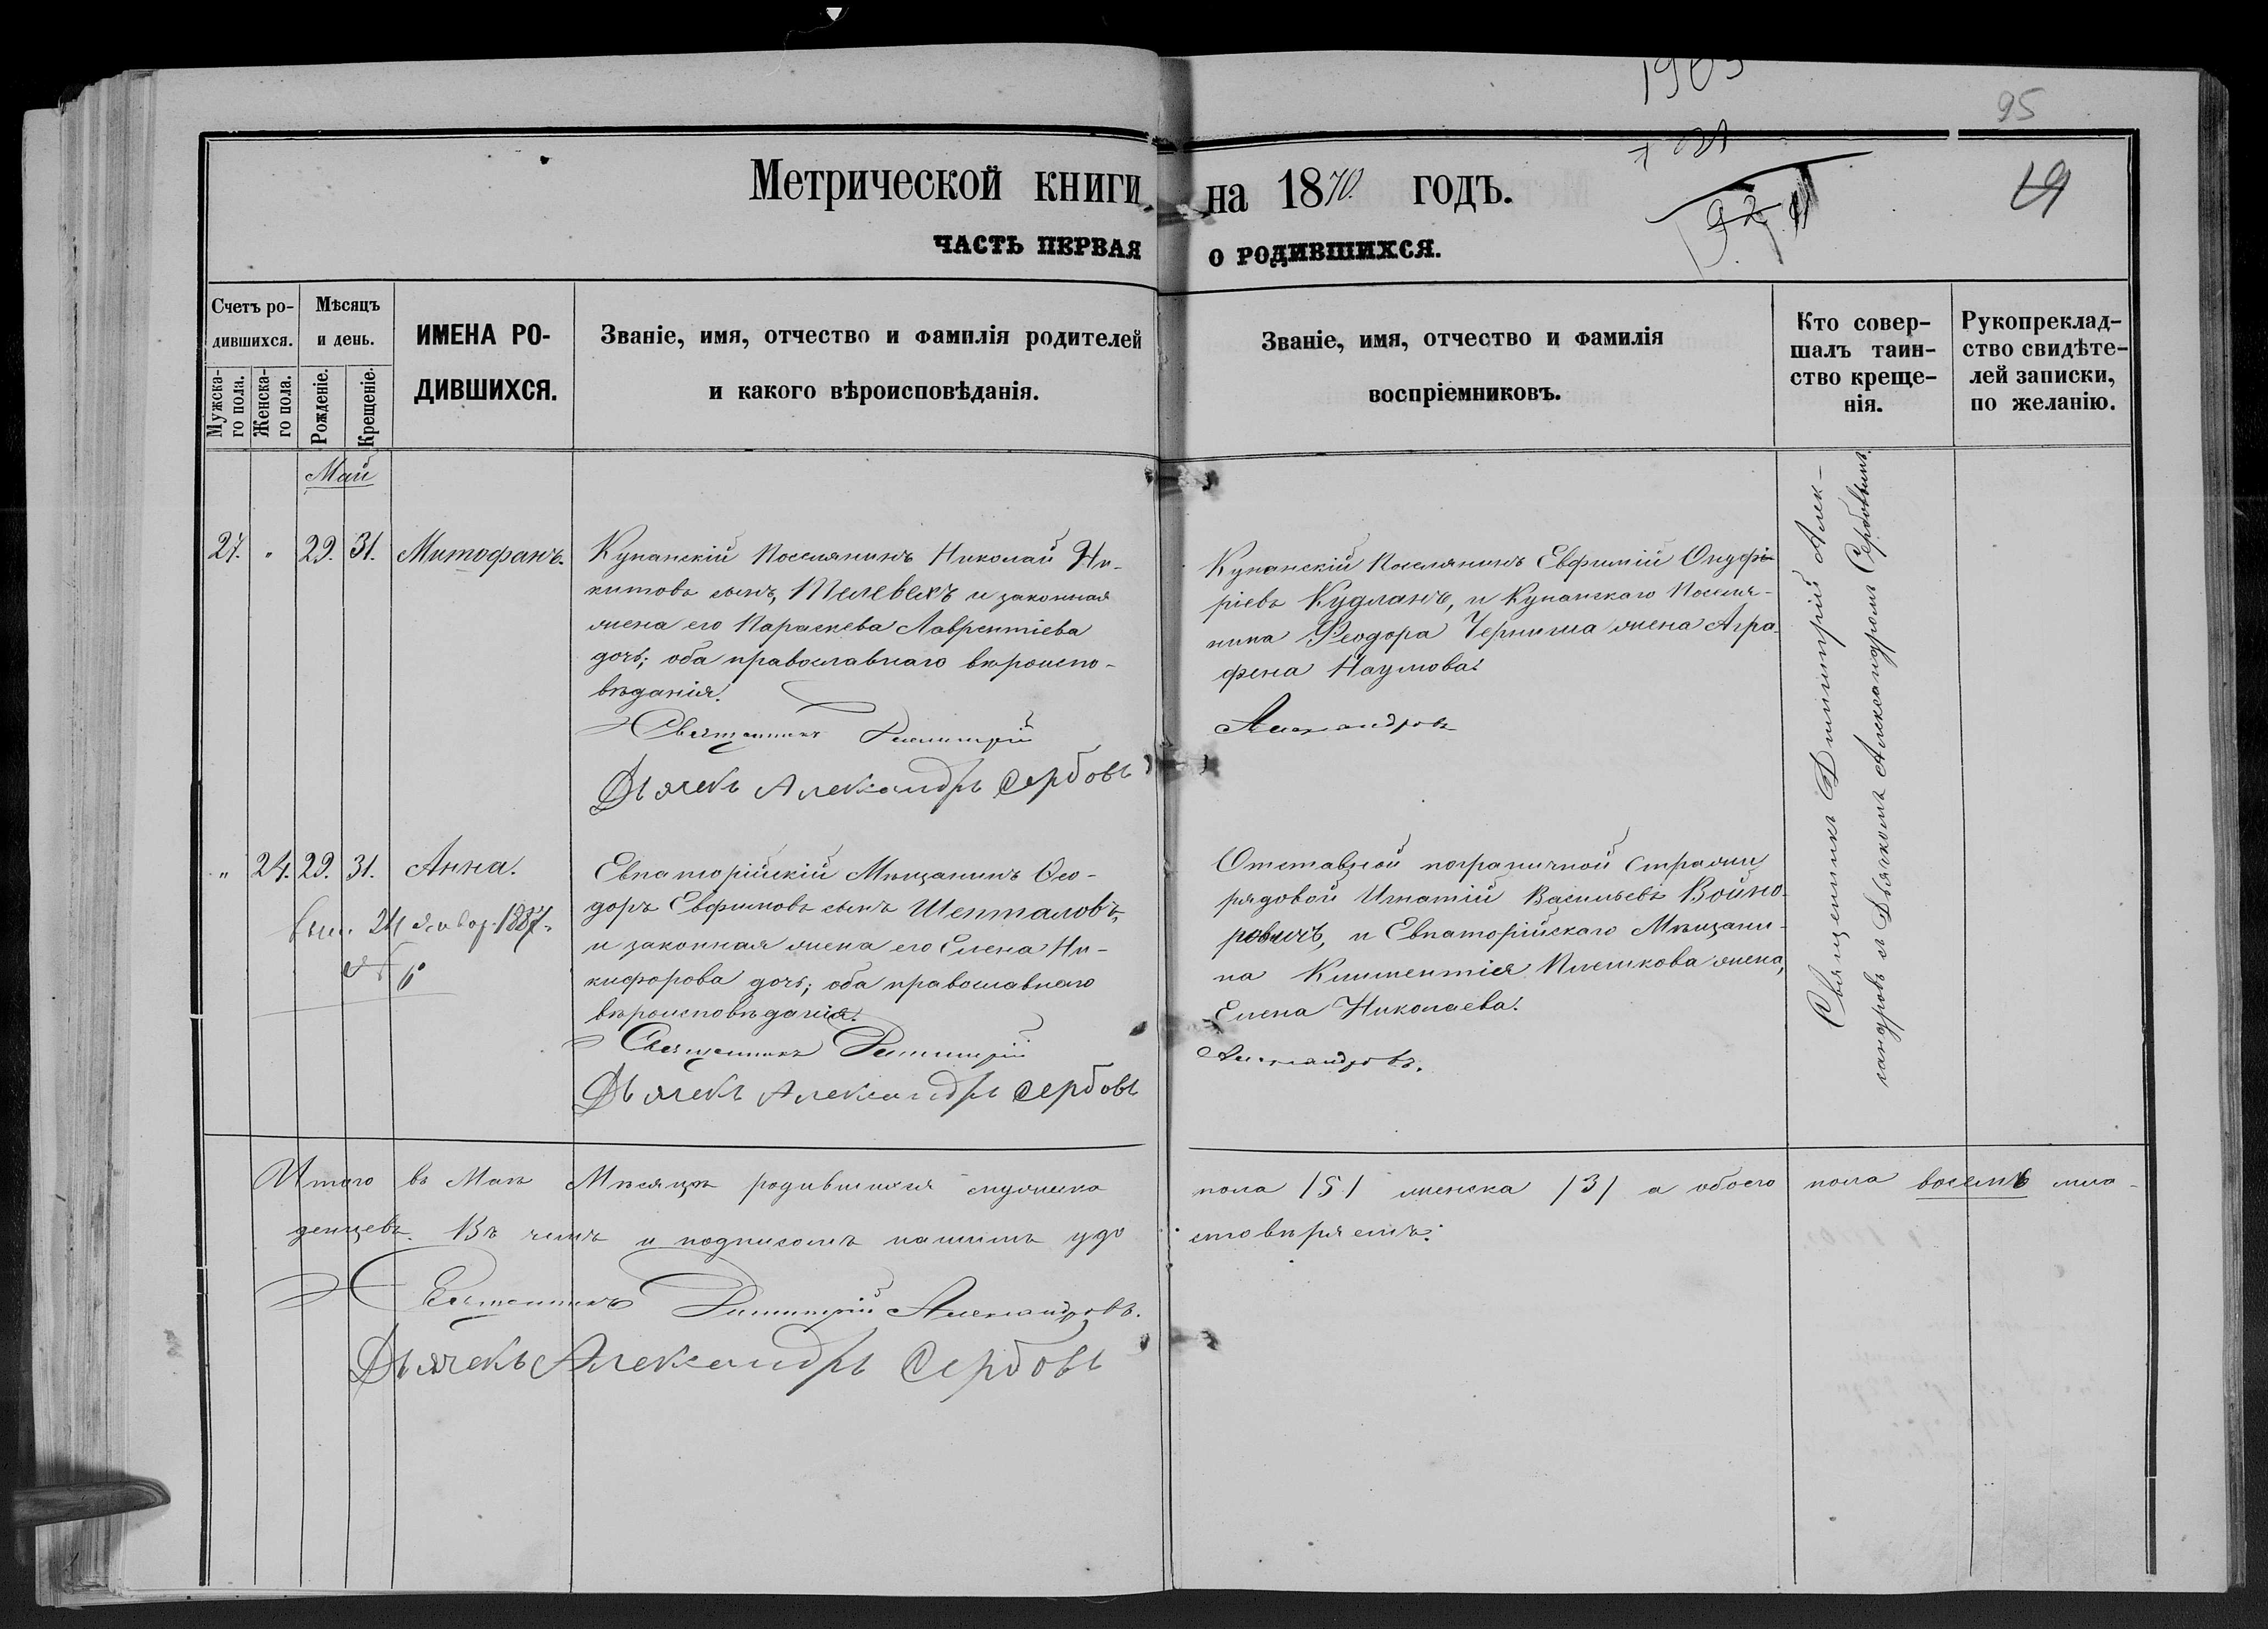 95
19
Метрической книги на 1870. годъ.
ЧАСТЬ ПЕРВАЯ О РОДИВШИХСЯ.
Счетъ ро-
дившихся.
Мужска-
го пола.
Женска-
го пола.
Мѣсяцъ
и день.
Рожденіе.
Крещеніе.
ИМЕНА РО-
ДИВШИХСЯ.
Званіе, имя, отчество и фамилія родителей
и какого вѣроисповѣданія.
Званіе, имя, отчество и фамилія
воспріемниковъ.
Кто совер-
шалъ таин-
ство креще-
нія.
Рукоприклад-
ство свидѣте-
лей записки,
по желанію.
Май
27. " 29. 31. Митофанъ.
Купанскій Поселянинъ Николай Ни-
китовъ сынъ, и законная
жена его Параскева Лаврентіева
дочь; оба православнаго вѣроиспо-
вѣданія.
Священникъ Димитрій
Дьячекъ Александръ Сербовъ
Купанскій Поселянинъ Евфимій Онуф-
ріевъ Кудланъ, и Купанскаго Поселя-
нина Феодора жена Агра-
фена Наумова.
Александровъ
Священникъ Димитрій Алек-
сандровъ съ Дьячкомъ Александромъ Сербовымъ.
" 24. 29. 31. Анна.
24 Январ. 1887.
Евпаторійскій Мѣщанинъ Ѳео-
доръ Евфимовъ сынъ Шепталовъ,
и законная жена его Елена Ни-
кифорова дочь; оба православнаго
вѣроисповѣданія.
Священникъ Димитрій
Дьячекъ Александръ Сербовъ
Отставной пограничной стражи
рядовой Игнатій Васильевъ Войно-
ровичъ, и Евпаторійскаго Мѣщани-
на Климентія Плешкова жена,
Елена Николаева.
Александровъ.
Итого въ Маѣ Мѣсяцѣ родившихся мужеска пола /5/ женска /3/ а обоего пола восемь мла-
денцевъ. Въ чемъ и подписомъ нашимъ удо стовѣряемъ:
Священникъ Димитрій Александровъ.
Дьячекъ Александръ Сербовъ